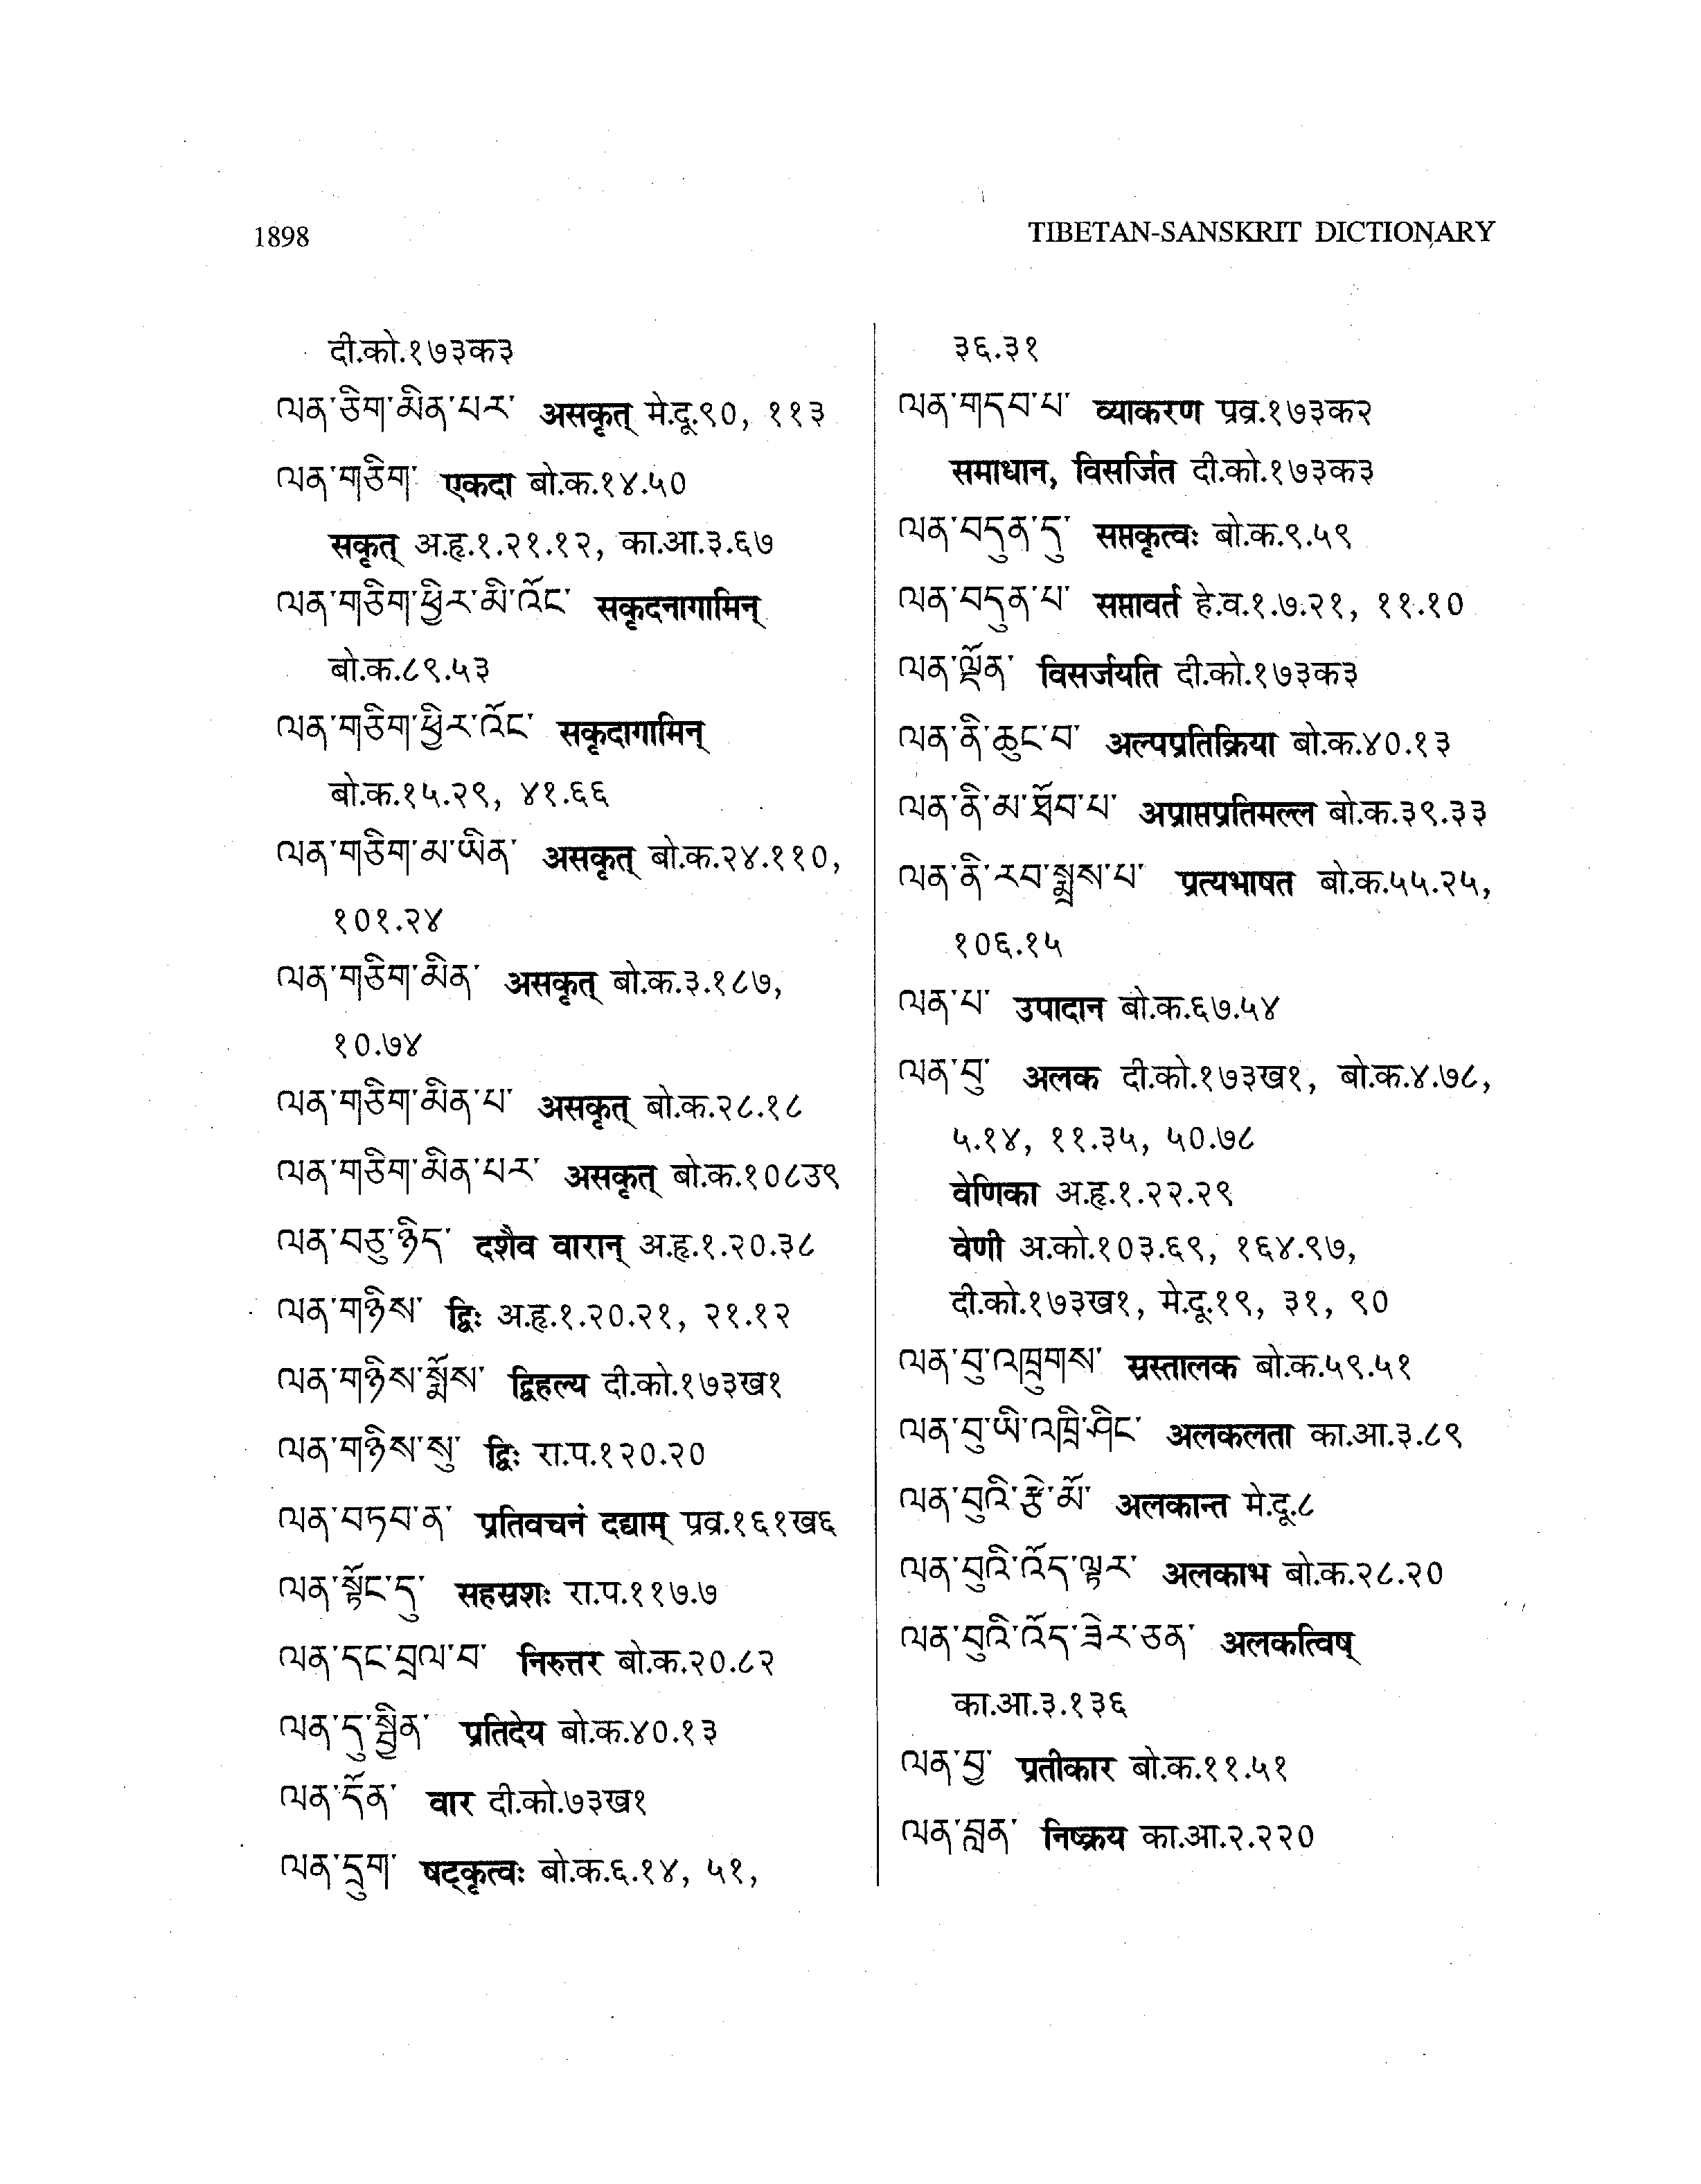 1898
TIBETAN-SANSKRIT DICTIONARY
दी.को.१७३क३
ལན་ཅིག་མིན་པར་ असकृत् मे.दू.९०, ११३
ལན་གཅིག་ एकदा बो.क.१४.५०
सकृत् अ.हृ.१.२१.१२, का.आ.३.६७
ལན་གཅིག་ཕྱིར་མི་འོང་ सकृदनागामिन्
बो.क.८९.५३
ལན་གཅིག་ཕྱིར་འོང་ सकृदागामिन्
बो.क.१५.२९, ४१.६६
ལན་གཅིག་མ་ཡིན་ असकृत् बो.क.२४.११०,
१०१.२४
ལན་གཅིག་མིན་ असकृत् बो.क.३.१८७,
१०.७४
ལན་གཅིག་མིན་པ་ असकृत् बो.क.२८.१८
ལན་གཅིག་མིན་པར་ असकृत् बो.क.१०८उ९
ལན་བཅུ་ཉིད་ दशैव वारान् अ.हृ.१.२०.३८
ལན་གཉིས་ द्विः अ.हृ.१.२०.२१, २१.१२
ལན་གཉིས་སྨོས་ द्विहल्य दी.को.१७३ख१
ལན་གཉིས་སུ་ द्विः रा.प.१२०.२०
ལན་བཏབ་ན་ प्रतिवचनं दद्याम् प्रव्र.१६१ख६
ལན་སྟོང་དུ་ सहस्रशः रा.प.११७.७
ལན་དང་བྲལ་བ་ निरुत्तर बो.क.२०.८२
ལན་དུ་སྦྱིན་ प्रतिदेय बो.क.४०.१३
ལན་དོན་ वार दी.को.७३ख१
ལན་དྲུག་ षट्कृत्वः बो.क.६.१४, ५१,
३६.३१
ལན་གདབ་པ་ व्याकरण प्रव्र.१७३क२
समाधान, विसर्जित दी.को.१७३क३
ལན་བདུན་དུ་ सप्तकृत्वः बो.क.९.५९
ལན་བདུན་པ་ सप्तावर्त हे.व.१.७.२१, ११.१०
ལན་ལྡོན་ विसर्जयति दी.को.१७३क३
ལན་ནི་ཆུང་བ་ अल्पप्रतिक्रिया बो.क.४०.१३
ལན་ནི་མ་ཐོབ་པ་ अप्राप्तप्रतिमल्ल बो.क.३९.३३
ལན་ནི་རབ་སྨྲས་པ་ प्रत्यभाषत बो.क.५५.२५,
१०६.१५
ལན་པ་ उपादान बो.क.६७.५४
ལན་བུ་ अलक दी.को.१७३ख१, बो.क.४.७८,
५.१४, ११.३५, ५०.७८
वेणिका अ.हृ.१.२२.२९
वेणी अ.को.१०३.६९, १६४.९७,
दी.को.१७३ख१, मे.दू.१९, ३१, ९०
ལན་བུ་འཁྲུགས་ स्रस्तालक बो.क.५९.५१
ལན་བུ་ཡི་འཁྲི་ཤིང་ अलकलता का.आ.३.८९
ལན་བུའི་རྩེ་མོ་ अलकान्त मे.दू.८
ལན་བུའི་འོད་ལྟར་ अलकाभ बो.क.२८.२०
ལན་བུའི་འོད་ཟེར་ཅན་ अलकत्विष्
का.आ.३.१३६
ལན་བྱ་ प्रतीकार बो.क.११.५१
ལན་བླན་ निष्क्रय का.आ.२.२२०